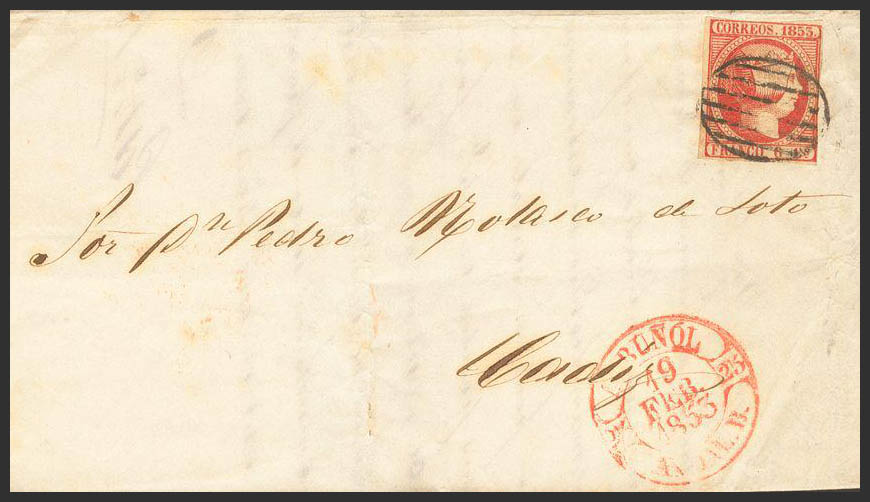 CORREOS. 1853.
FRANCO. 6
Sor Dn Pedro Nolasco de Soto
Cadiz
BUÑOL
19
FEB.
1853